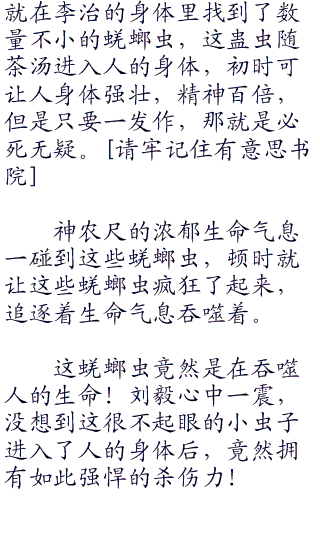 就在李治的身体里找到了数
量不小的蜣螂虫，这蛊虫随
茶汤进入人的身体，初时可
让人身体强壮，精神百倍，
但是只要一发作，那就是必
死无疑。[请牢记住有意思书
院]
神农尺的浓郁生命气息
一碰到这些蜣螂虫，顿时就
让这些蜣螂虫疯狂了起来，
追逐着生命气息吞噬着。
这蜣螂虫竟然是在吞噬
人的生命！刘毅心中一震，
没想到这很不起眼的小虫子
进入了人的身体后，竟然拥
有如此强悍的杀伤力！